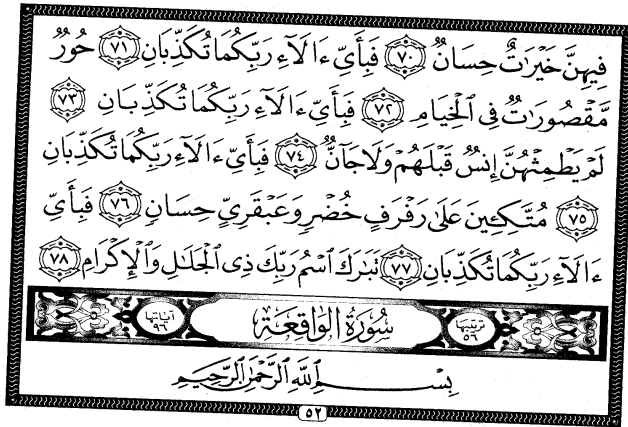 فِيهِنَّ خَيْرَٰتٌ حِسَانٌ ٧٠ فَبِأَىِّ ءَالَآءِ رَبِّكُمَا تُكَذِّبَانِ ٧١ حُورٌ
مَّقْصُورَٰتٌ فِى ٱلْخِيَامِ ٧٢ فَبِأَىِّ ءَالَآءِ رَبِّكُمَا تُكَذِّبَانِ ٧٣
لَمْ يَطْمِثْهُنَّ إِنسٌ قَبْلَهُمْ وَلَا جَآنٌّ ٧٤ فَبِأَىِّ ءَالَآءِ رَبِّكُمَا تُكَذِّبَانِ
٧٥ مُتَّكِـِٔينَ عَلَىٰ رَفْرَفٍ خُضْرٍ وَعَبْقَرِىٍّ حِسَانٍ ٧٦ فَبِأَىِّ
ءَالَآءِ رَبِّكُمَا تُكَذِّبَانِ ٧٧ تَبَٰرَكَ ٱسْمُ رَبِّكَ ذِى ٱلْجَلَٰلِ وَٱلْإِكْرَامِ ٧٨
ترتيبها ٥٦ سُورَةُ الْوَاقِعَةِ آياتها ٩٦
بِسْمِ ٱللَّهِ ٱلرَّحْمَٰنِ ٱلرَّحِيمِ
٥٢